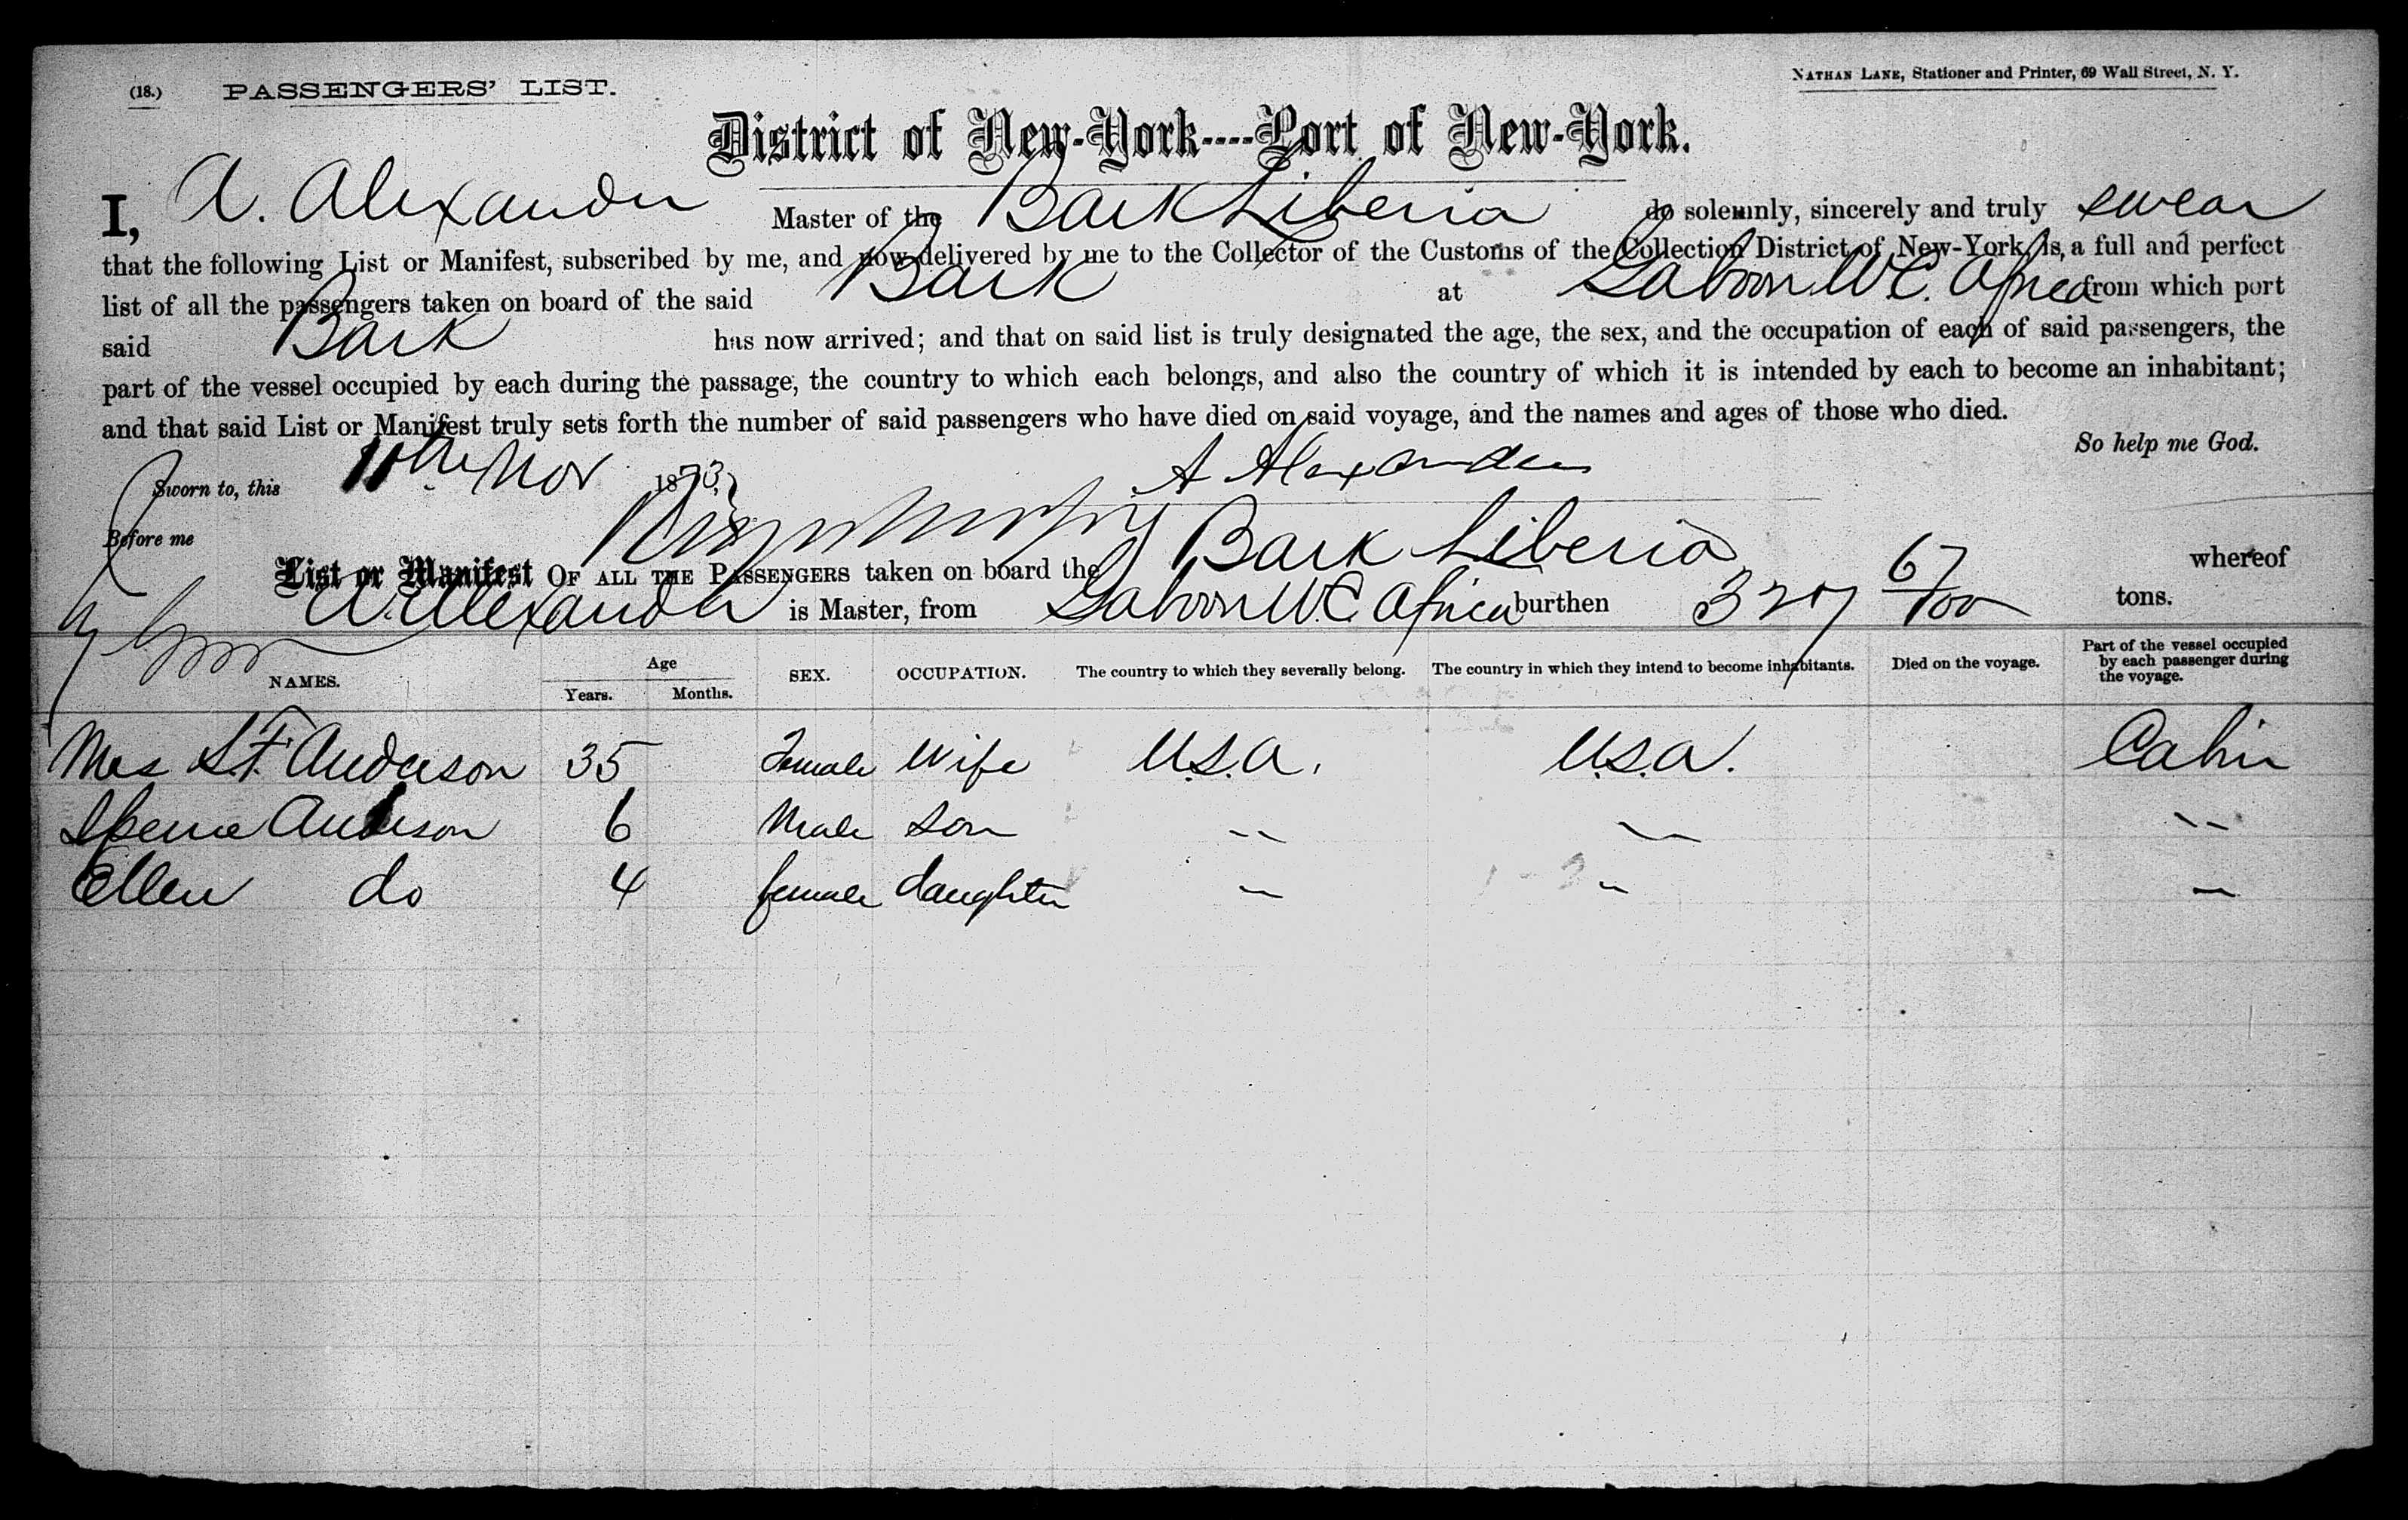 (18.) PASSENGERS' LIST.
NATHAN LANE, Stationer and Printer, 69 Wall Street, N. Y.
District of New-York----Port of New-York.
I, A. Alexander Master of the Bark Liberia do solemnly, sincerely and truly swear
that the following List or Manifest, subscribed by me, and now delivered by me to the Collector of the Customs of the Collection District of New-York, is, a full and perfect
list of all the passengers taken on board of the said Bark at Gaboon W.C. Africa from which port
said Bark has now arrived; and that on said list is truly designated the age, the sex, and the occupation of each of said passengers, the
part of the vessel occupied by each during the passage, the country to which each belongs, and also the country of which it is intended by each to become an inhabitant;
and that said List or Manifest truly sets forth the number of said passengers who have died on said voyage, and the names and ages of those who died.
So help me God.
Sworn to, this Nov 1873 A Alexander
Before me
List or Manifest OF ALL THE PASSENGERS taken on board the Bark Liberia whereof
A. Alexander is Master, from Gaboon W.C. Africa burthen 327 67/100 tons.
NAMES. Age Years. Months. SEX. OCCUPATION. The country to which they severally belong. The country in which they intend to become inhabitants. Died on the voyage. Part of the vessel occupied by each passenger during the voyage.
Mrs S.F. Anderson 35 Female Wife U.S.A. U.S.A. Cabin
Anderson 6 Male Son -- -- --
Ellen do 4 female daughter - - -